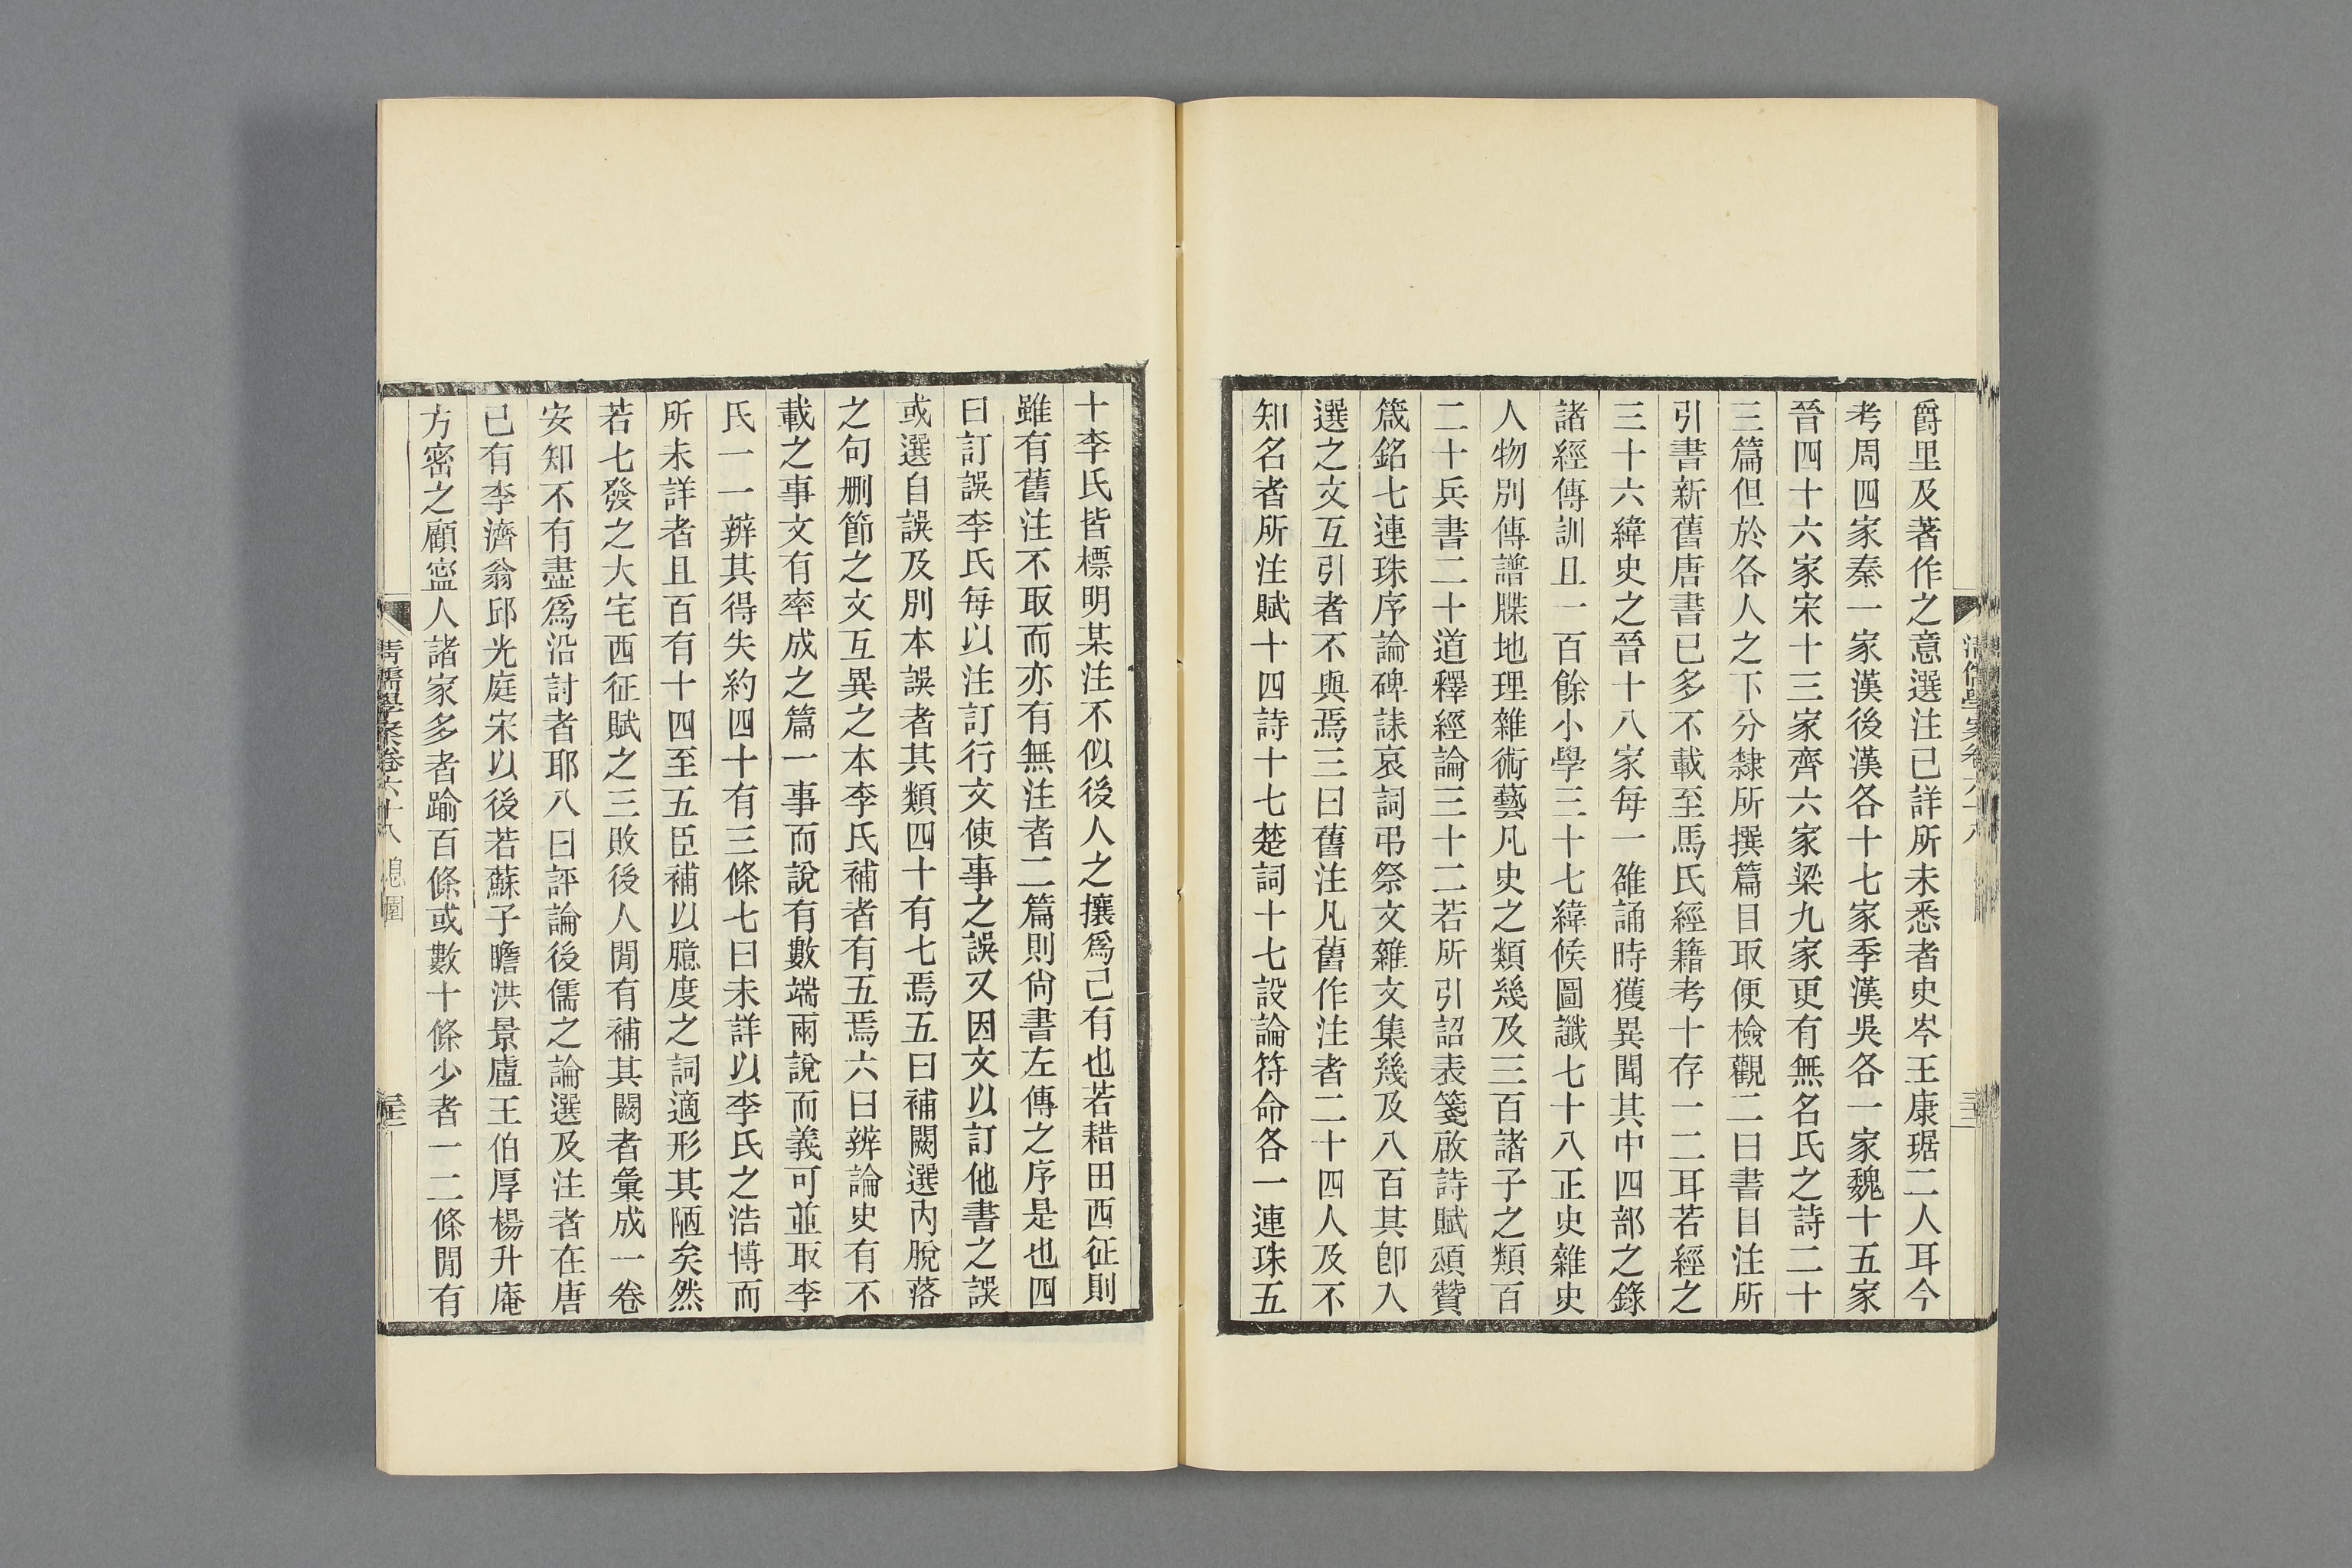 爵里及著作之意選注已詳所未悉者史岑王康琚二人耳今
考周四家秦一家漢後漢各十七家季漢吳各一家魏十五家
晉四十六家宋十三家齊六家梁九家更有無名氏之詩二十
三篇但於各人之下分隸所撰篇目取便檢觀二曰書目注所
引書新舊唐書已多不載至馬氏經籍考十存一二耳若經之
三十六緯史之晉十八家每一雒誦時獲異聞其中四部之錄
諸經傳訓且一百餘小學三十七緯候圖讖七十八正史雜史
人物別傳譜牒地理雜術藝凡史之類幾及三百諸子之類百
二十兵書二十道釋經論三十二若所引詔表箋啟詩賦頌贊
箴銘七連珠序論碑誄哀詞弔祭文雜文集幾及八百其卽入
選之文互引者不與焉三曰舊注凡舊作注者二十四人及不
知名者所注賦十四詩十七楚詞十七設論符命各一連珠五
十李氏皆標明某注不似後人之攘爲己有也若耤田西征則
雖有舊注不取而亦有無注者二篇則尙書左傳之序是也四
曰訂誤李氏每以注訂行文使事之誤又因文以訂他書之誤
或選自誤及別本誤者其類四十有七焉五曰補闕選內脫落
之句刪節之文互異之本李氏補者有五焉六曰辨論史有不
載之事文有率成之篇一事而說有數端兩說而義可並取李
氏一一辨其得失約四十有三條七曰未詳以李氏之浩博而
所未詳者且百有十四至五臣補以臆度之詞適形其陋矣然
若七發之大宅西征賦之三敗後人閒有補其闕者彙成一卷
安知不有盡爲沿討者耶八曰評論後儒之論選及注者在唐
已有李濟翁邱光庭宋以後若蘇子瞻洪景盧王伯厚楊升庵
方密之顧寍人諸家多者踰百條或數十條少者一二條閒有
清儒學案卷六十八 息園